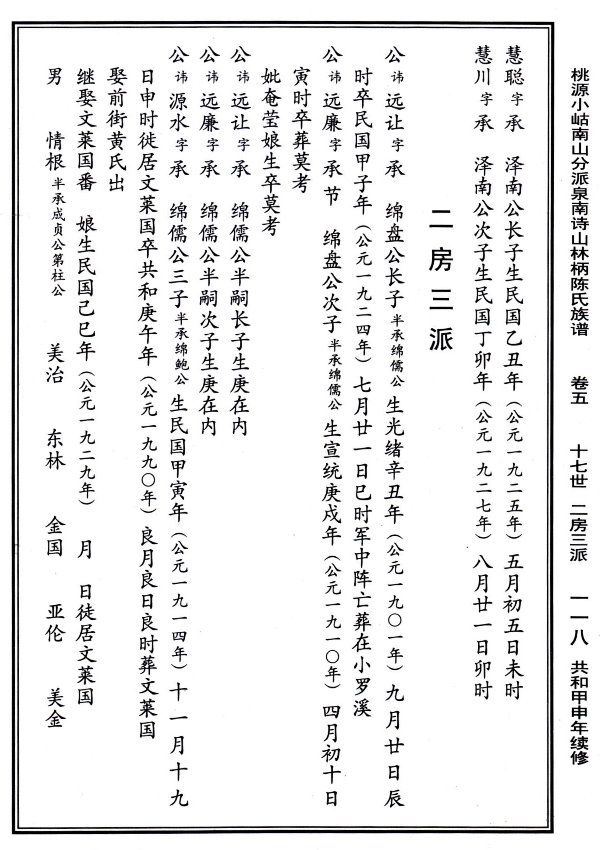 桃源小岵南山分派泉南诗山林柄陈氏族谱 卷五 十七世 二房三派 一一八 共和甲申年续修
慧聪字承 泽南公长子生民国乙丑年（公元一九二五年）五月初五日未时
慧川字承 泽南公次子生民国丁卯年（公元一九二七年）八月廿一日卯时
二房三派
公讳远让字承 绵盘公长子半承绵儒公生光绪辛丑年（公元一九〇一年）九月廿日辰
时卒民国甲子年（公元一九二四年）七月廿一日巳时军中阵亡葬在小罗溪
公讳远廉字承节 绵盘公次子半承绵儒公生宣统庚戌年（公元一九一〇年）四月初十日
寅时卒葬莫考
妣奄莹娘生卒莫考
公讳远让字承 绵儒公半嗣长子生庚在内
公讳远廉字承 绵儒公半嗣次子生庚在内
公讳源水字承 绵儒公三子半承绵鲍公生民国甲寅年（公元一九一四年）十一月十九
日申时徙居文莱国卒共和庚午年（公元一九九〇年）良月良日良时葬文莱国
娶前街黄氏出
继娶文莱国番 娘生民国己巳年（公元一九二九年） 月 日徒居文莱国
男 情根半承成贞公第柱公 美治 东林 金国 亚伦 美金